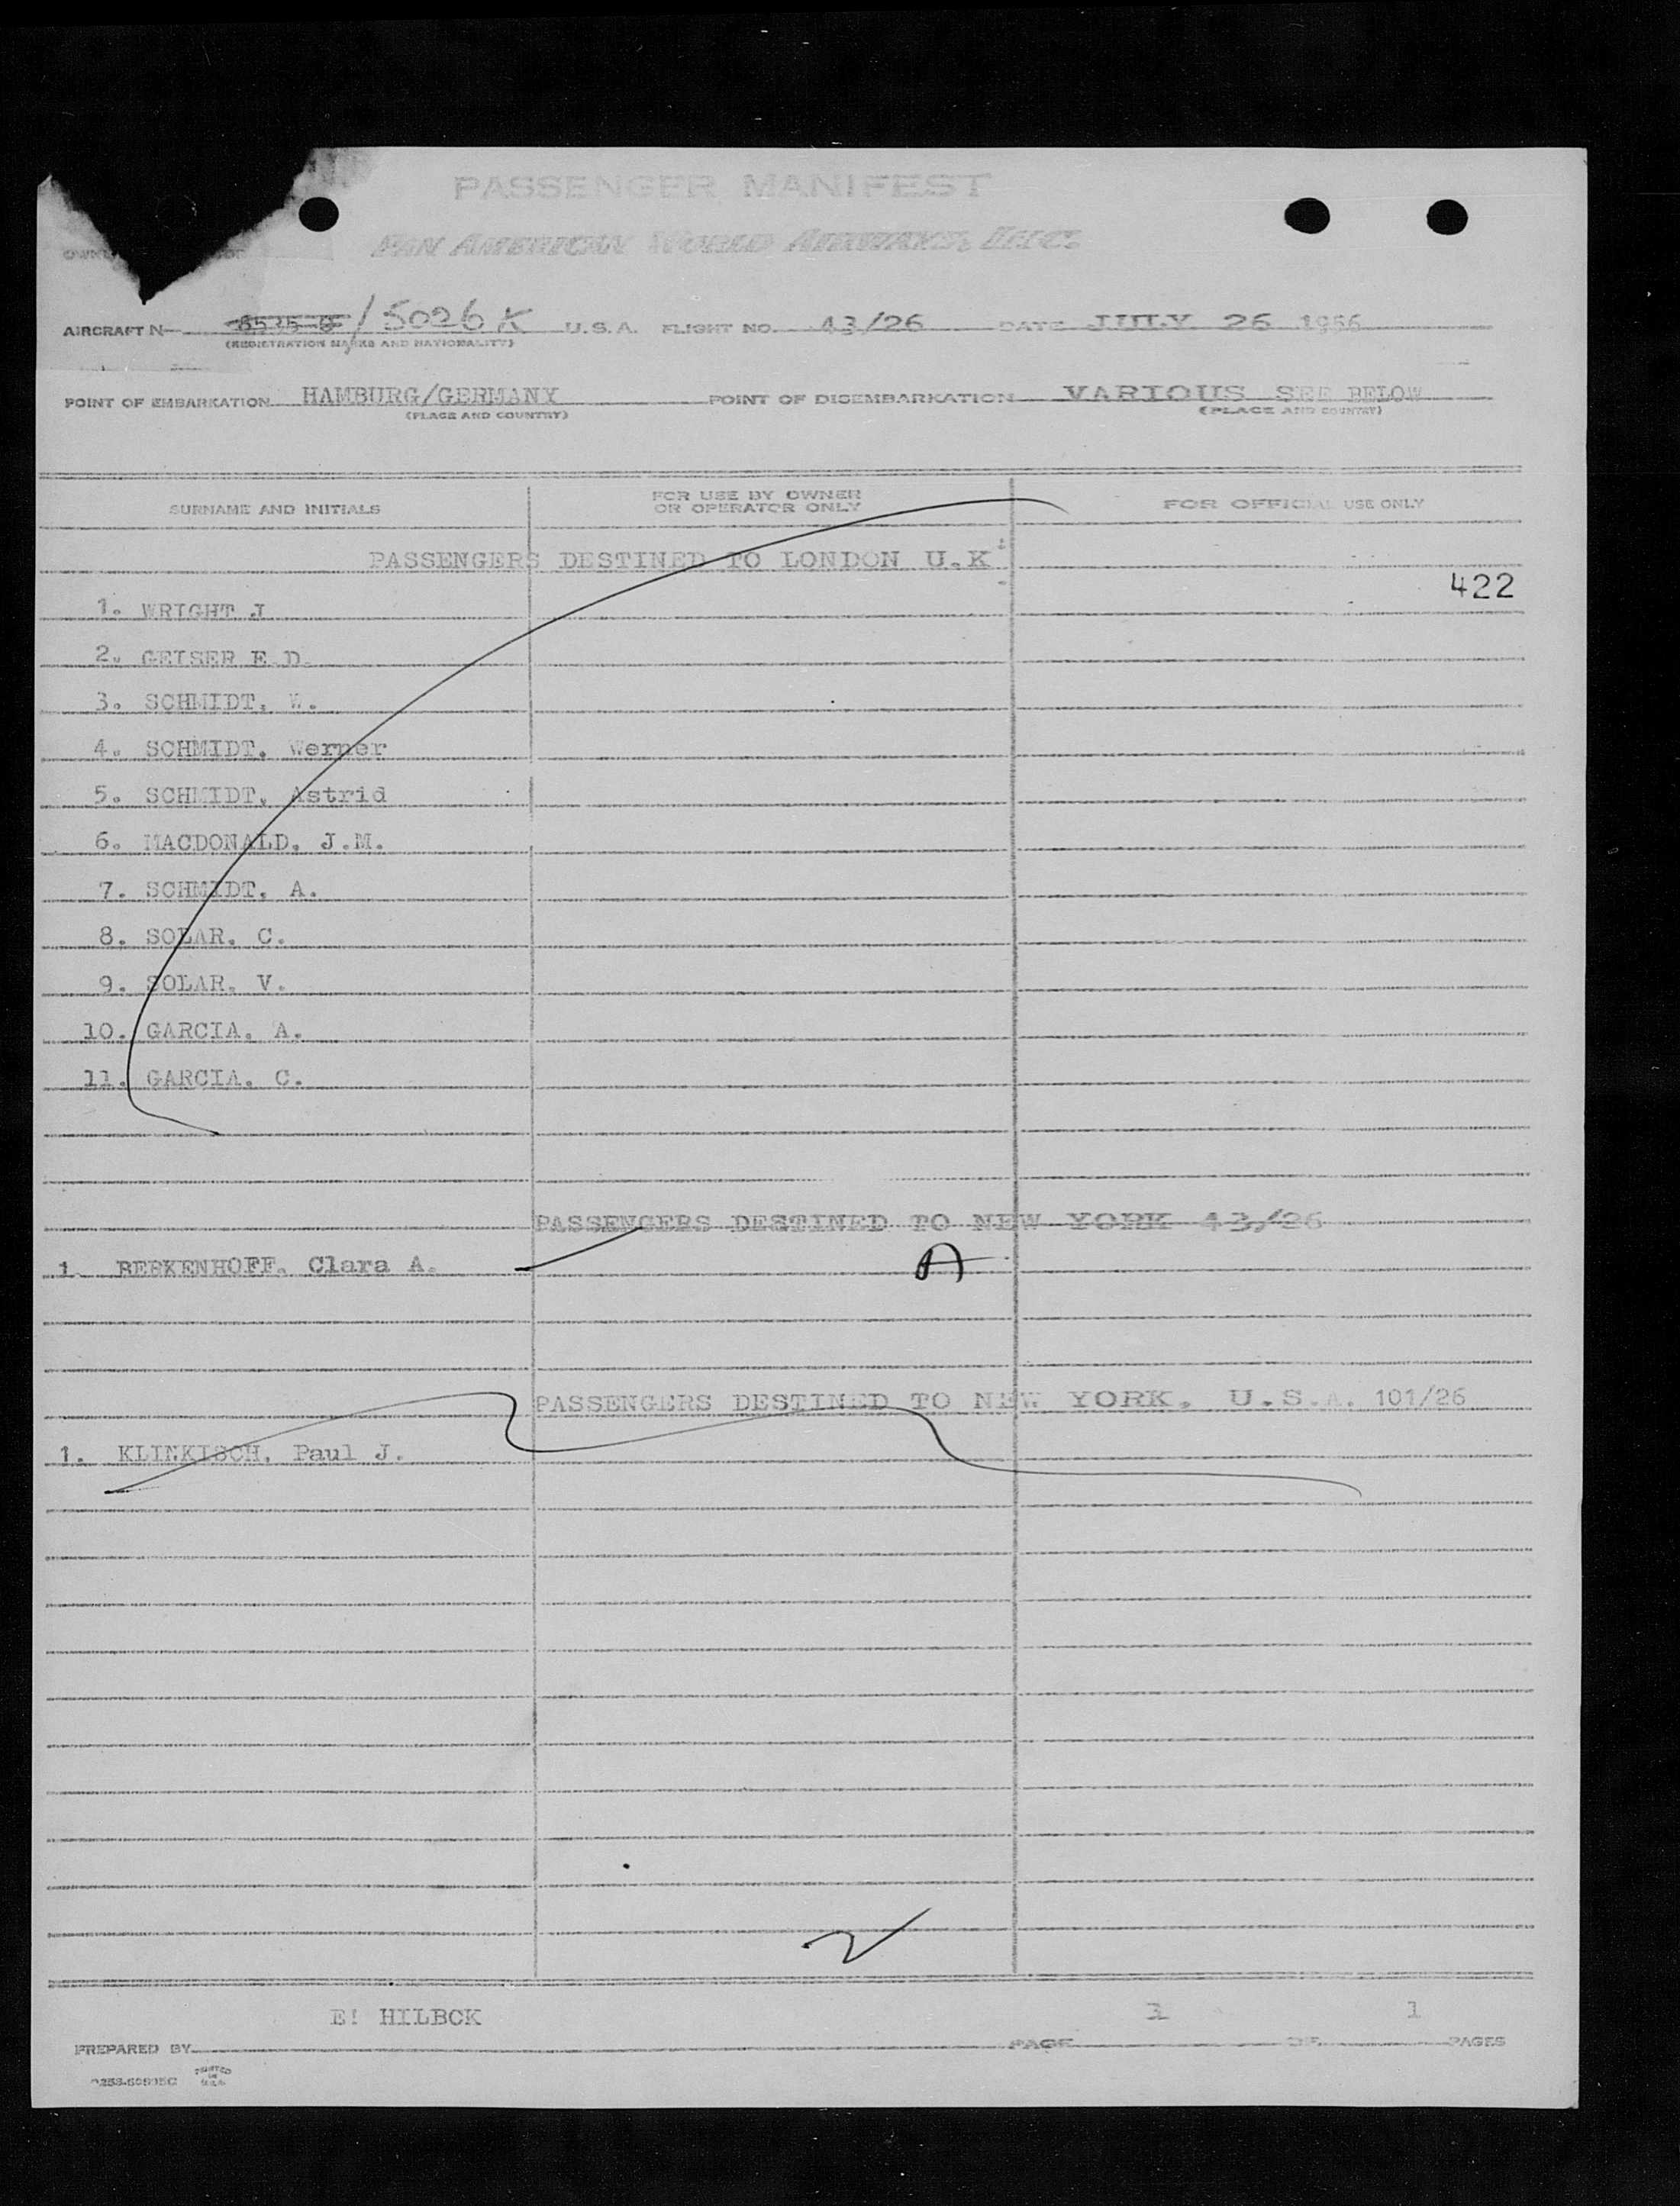 PASSENGER MANIFEST
PAN AMERICAN WORLD AIRWAYS, INC.
AIRCRAFT N 6535 C / 5026 K U.S.A. FLIGHT NO. 43/26 DATE JULY 26 1956
(REGISTRATION MARKS AND NATIONALITY)
POINT OF EMBARKATION HAMBURG/GERMANY POINT OF DISEMBARKATION VARIOUS SEE BELOW
(PLACE AND COUNTRY) (PLACE AND COUNTRY)
SURNAME AND INITIALS FOR USE BY OWNER OR OPERATOR ONLY FOR OFFICIAL USE ONLY
PASSENGERS DESTINED TO LONDON U.K
422
1. WRIGHT J
2. GEISER E.D.
3. SCHMIDT, W.
4. SCHMIDT, Werner
5. SCHMIDT, Astrid
6. MACDONALD, J.M.
7. SCHMIDT, A.
8. SOLAR, C.
9. SOLAR, V.
10. GARCIA, A.
11. GARCIA, C.
PASSENGERS DESTINED TO NEW YORK 43/26
1. BERKENHOFF, Clara A. A
PASSENGERS DESTINED TO NEW YORK, U.S.A. 101/26
1. KLINKISCH, Paul J.
E! HILBCK 1 1
PREPARED BY PAGE OF PAGES
PRINTED IN U.S.A.